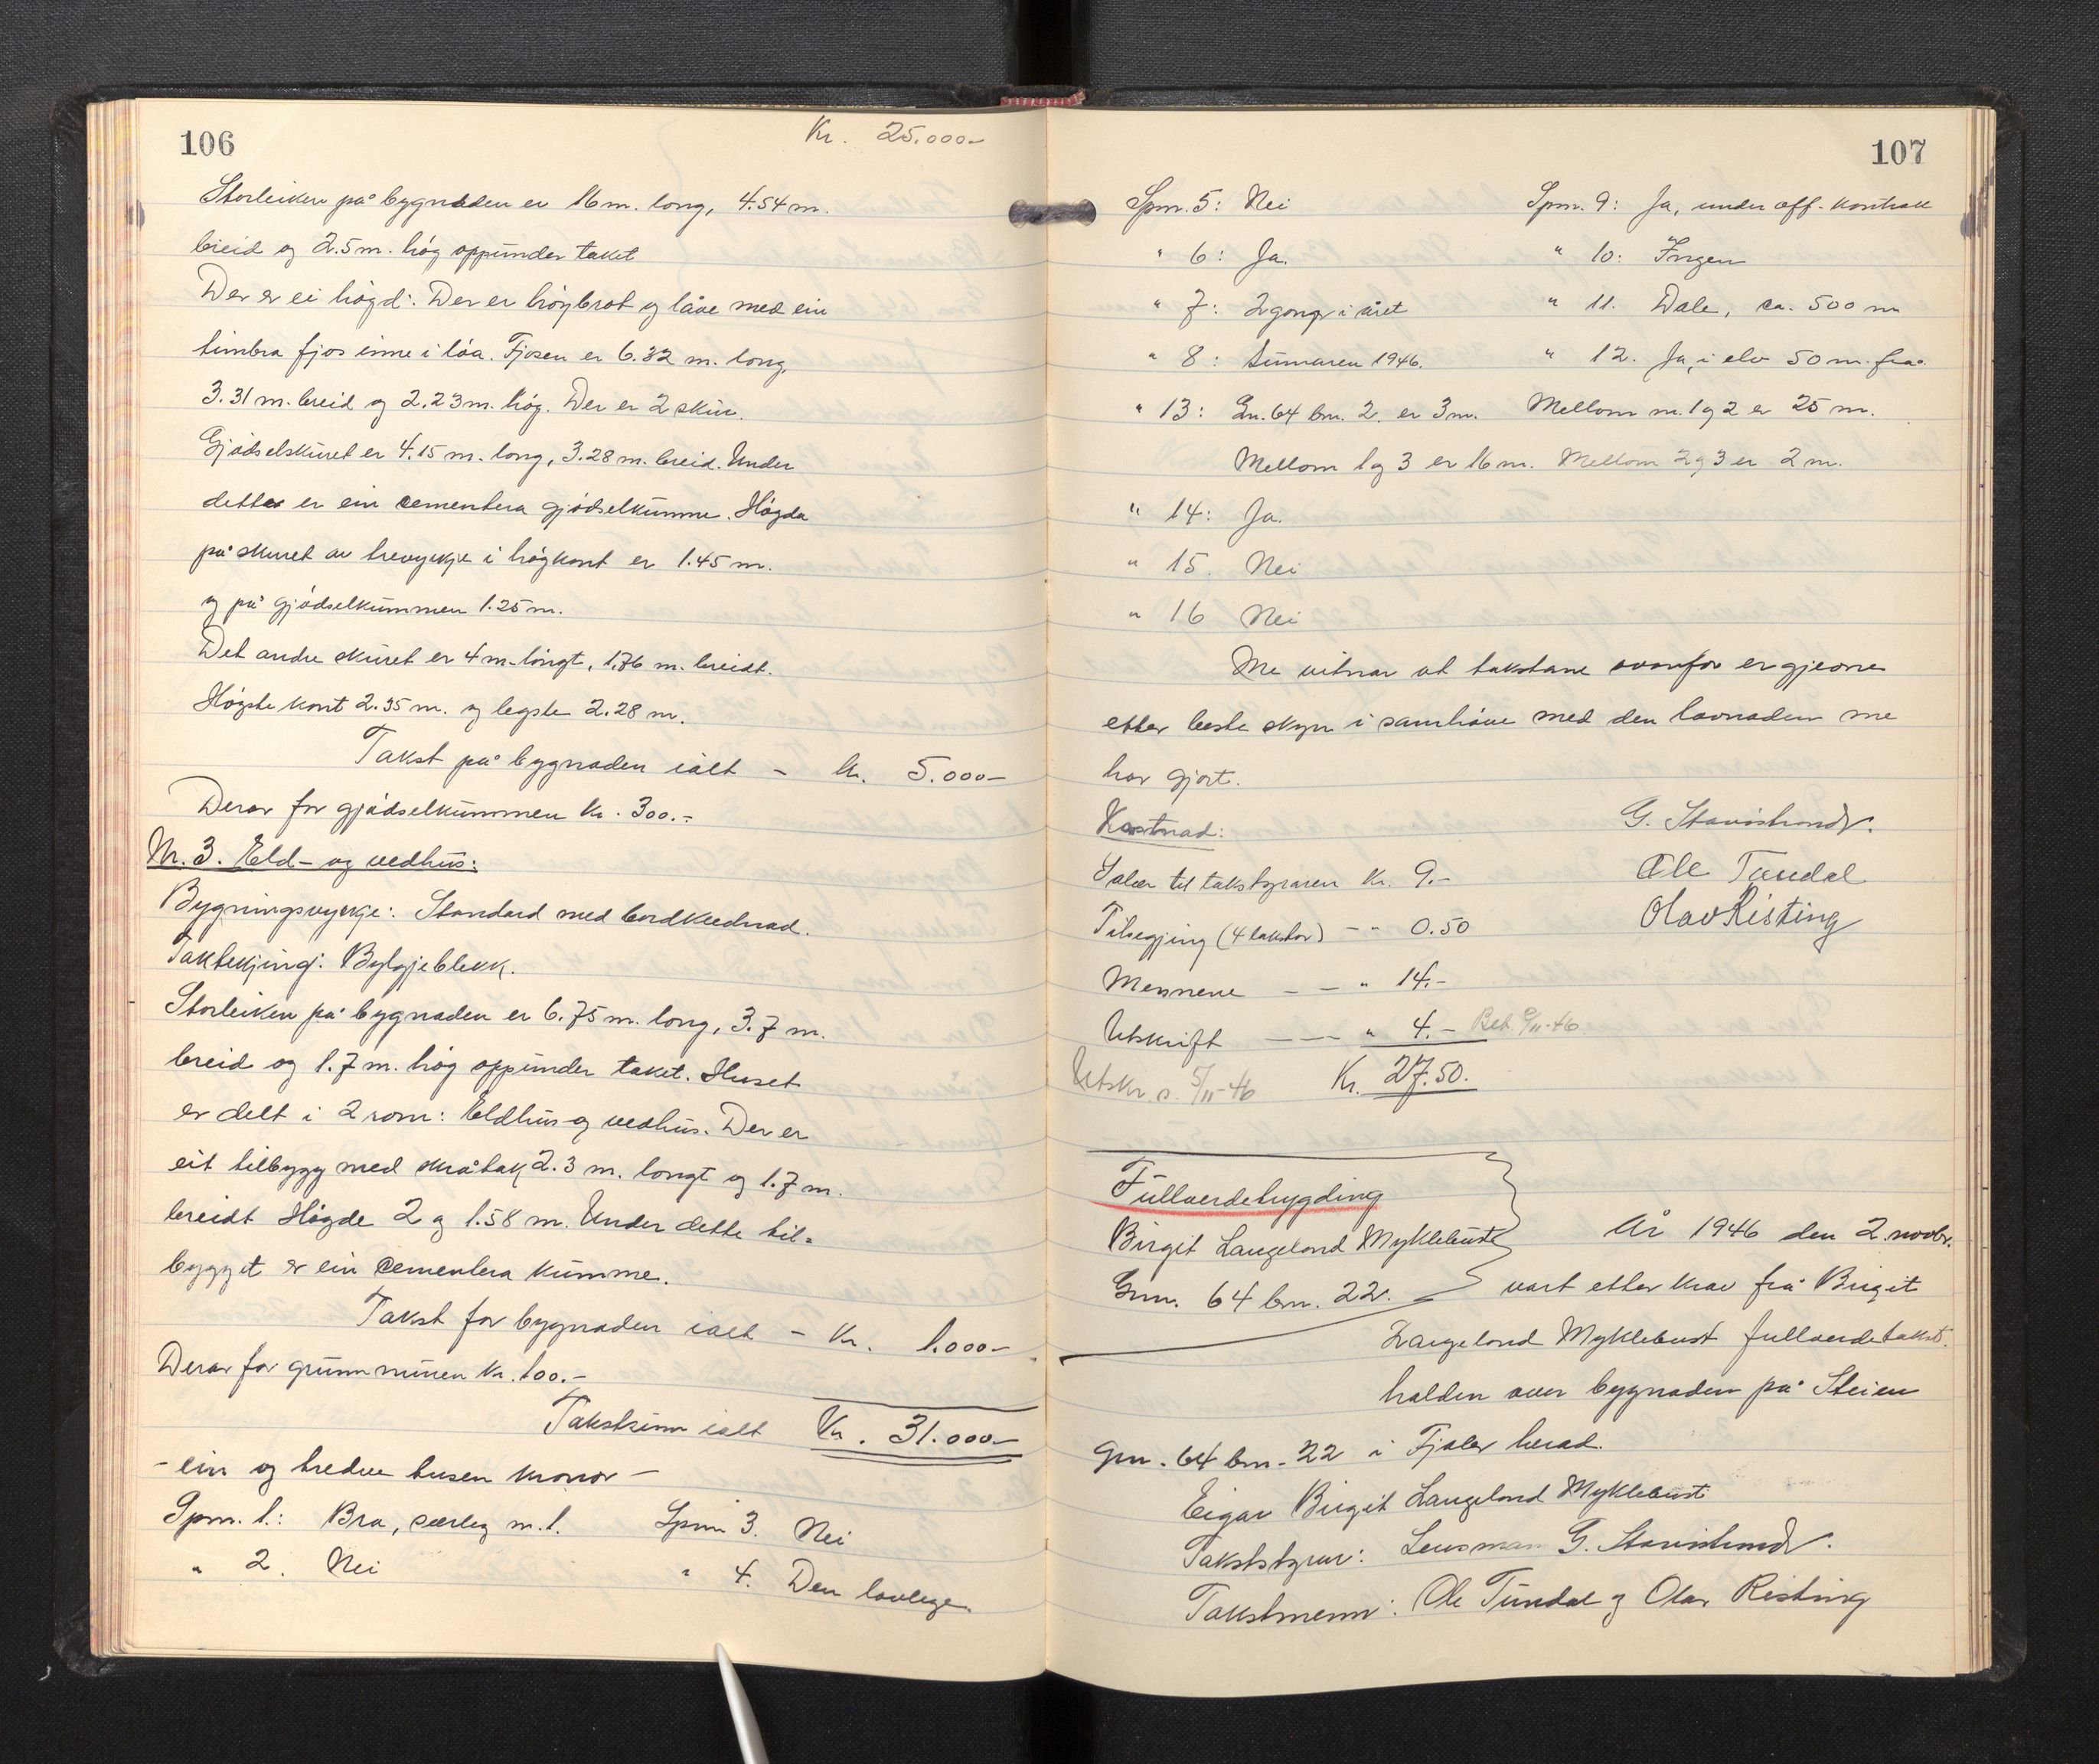 106
Kr. 25.000-
Storleiken på bygnaden er 16 m. long, 4.54 m.
breid og 2.5 m. høg oppunder taket
Der er ei høgd. Der er høybrot og låve med ein
timbra fjos inne i løa. Fjosen er 6.32 m. long,
3.31 m. breid og 2.23 m. høg. Der er 2 skur.
Gjødselskuret er 4.15 m. long, 3.28 m. breid. Under
dette er ein cementera gjødselkumme. Høgda
på skuret av trevyrkje i høgkant er 1.45 m.
og på gjødselkummen 1.25 m.
Det andre skuret er 4 m. longt, 1.76 m. breidt.
Høgste kant 2.35 m. og legste 2.28 m.
Takst på bygnaden ialt - kr. 5.000-
Derav for gjødselkummen kr. 300.-
Nr. 3. Eld- og vedhus:
Bygningsvyrkje: Standard med bordklednad.
Taktekjing: Bylgjeblekk.
Storleiken på bygnaden er 6.75 m. long, 3.7 m.
breid og 1.7 m. høg oppunder taket. Huset
er delt i 2 rom: Eldhus og vedhus. Der er
eit tilbygg med skråtak 2.3 m. longt og 1.7 m.
breidt Høgde 2 og 1.58 m. Under dette til-
bygget er ein cementera kumme.
Takst for bygnaden ialt - Kr. 1.000-
Derav for grunnmuren kr. 100.-
Takstsum ialt Kr. 31.000-
- ein og tredve tusen kronor -
Spm. 1.: Bra, særleg nr. 1. Spm 3. Nei
" 2. Nei " 4. Den lovlege.
107
Spm. 5: Nei Spm. 9: Ja, under off. kontroll
" 6: Ja. " 10: Ingen
" 7: 2 gonger i året " 11. Dale, ca. 500 m
" 8: Sumaren 1946. " 12. Ja, i elv 50 m. frå.
" 13: Gn. 64 bn. 2. er 3 m. Mellom nr. 1 og 2 er 25 m.
Mellom 1 og 3 er 16 m. Mellom 2 og 3 er 2 m.
" 14: Ja.
" 15. Nei
" 16 Nei
Me vitnar at takstane ovanfor er gjevne
etter beste skyn i samhøve med den lovnaden me
har gjort.
Kostnad: G. Stavøstrand.
Salær til takstyraren Kr. 9.- Ole Tundal
Tilsegjing (4 takstar) - " 0.50 Olav Risting
Mennene - - " 14.-
Utskrift - - - " 4.- Bet. 9/11-46
Utskr. s. 5/11-46 Kr. 27.50.
Fullverdetrygding
Birgit Langeland Myklebust År 1946 den 2. novbr.
Gnr. 64 bn. 22. vart etter krav frå Birgit
Langeland Myklebust fullverdetakst
halden over bygnaden på Steien
gnr. 64 bn. 22 i Fjaler herad.
Eigar Birgit Langeland Myklebust
Takststyrar: Lensmann G. Stavøstrand.
Takstmenn: Ole Tundal og Olav Risting